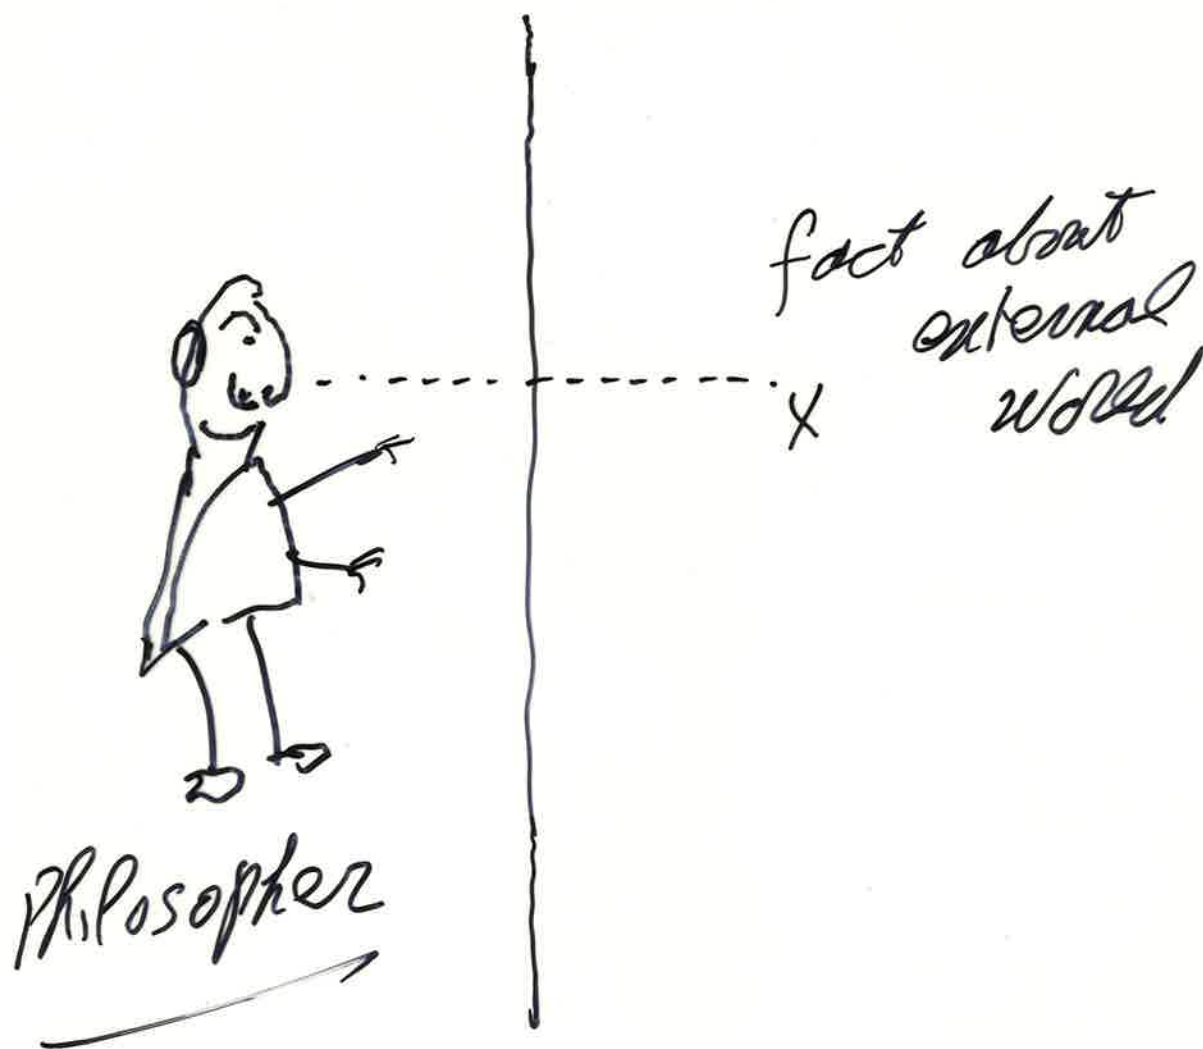 fact about
external
world
X
Philosopher